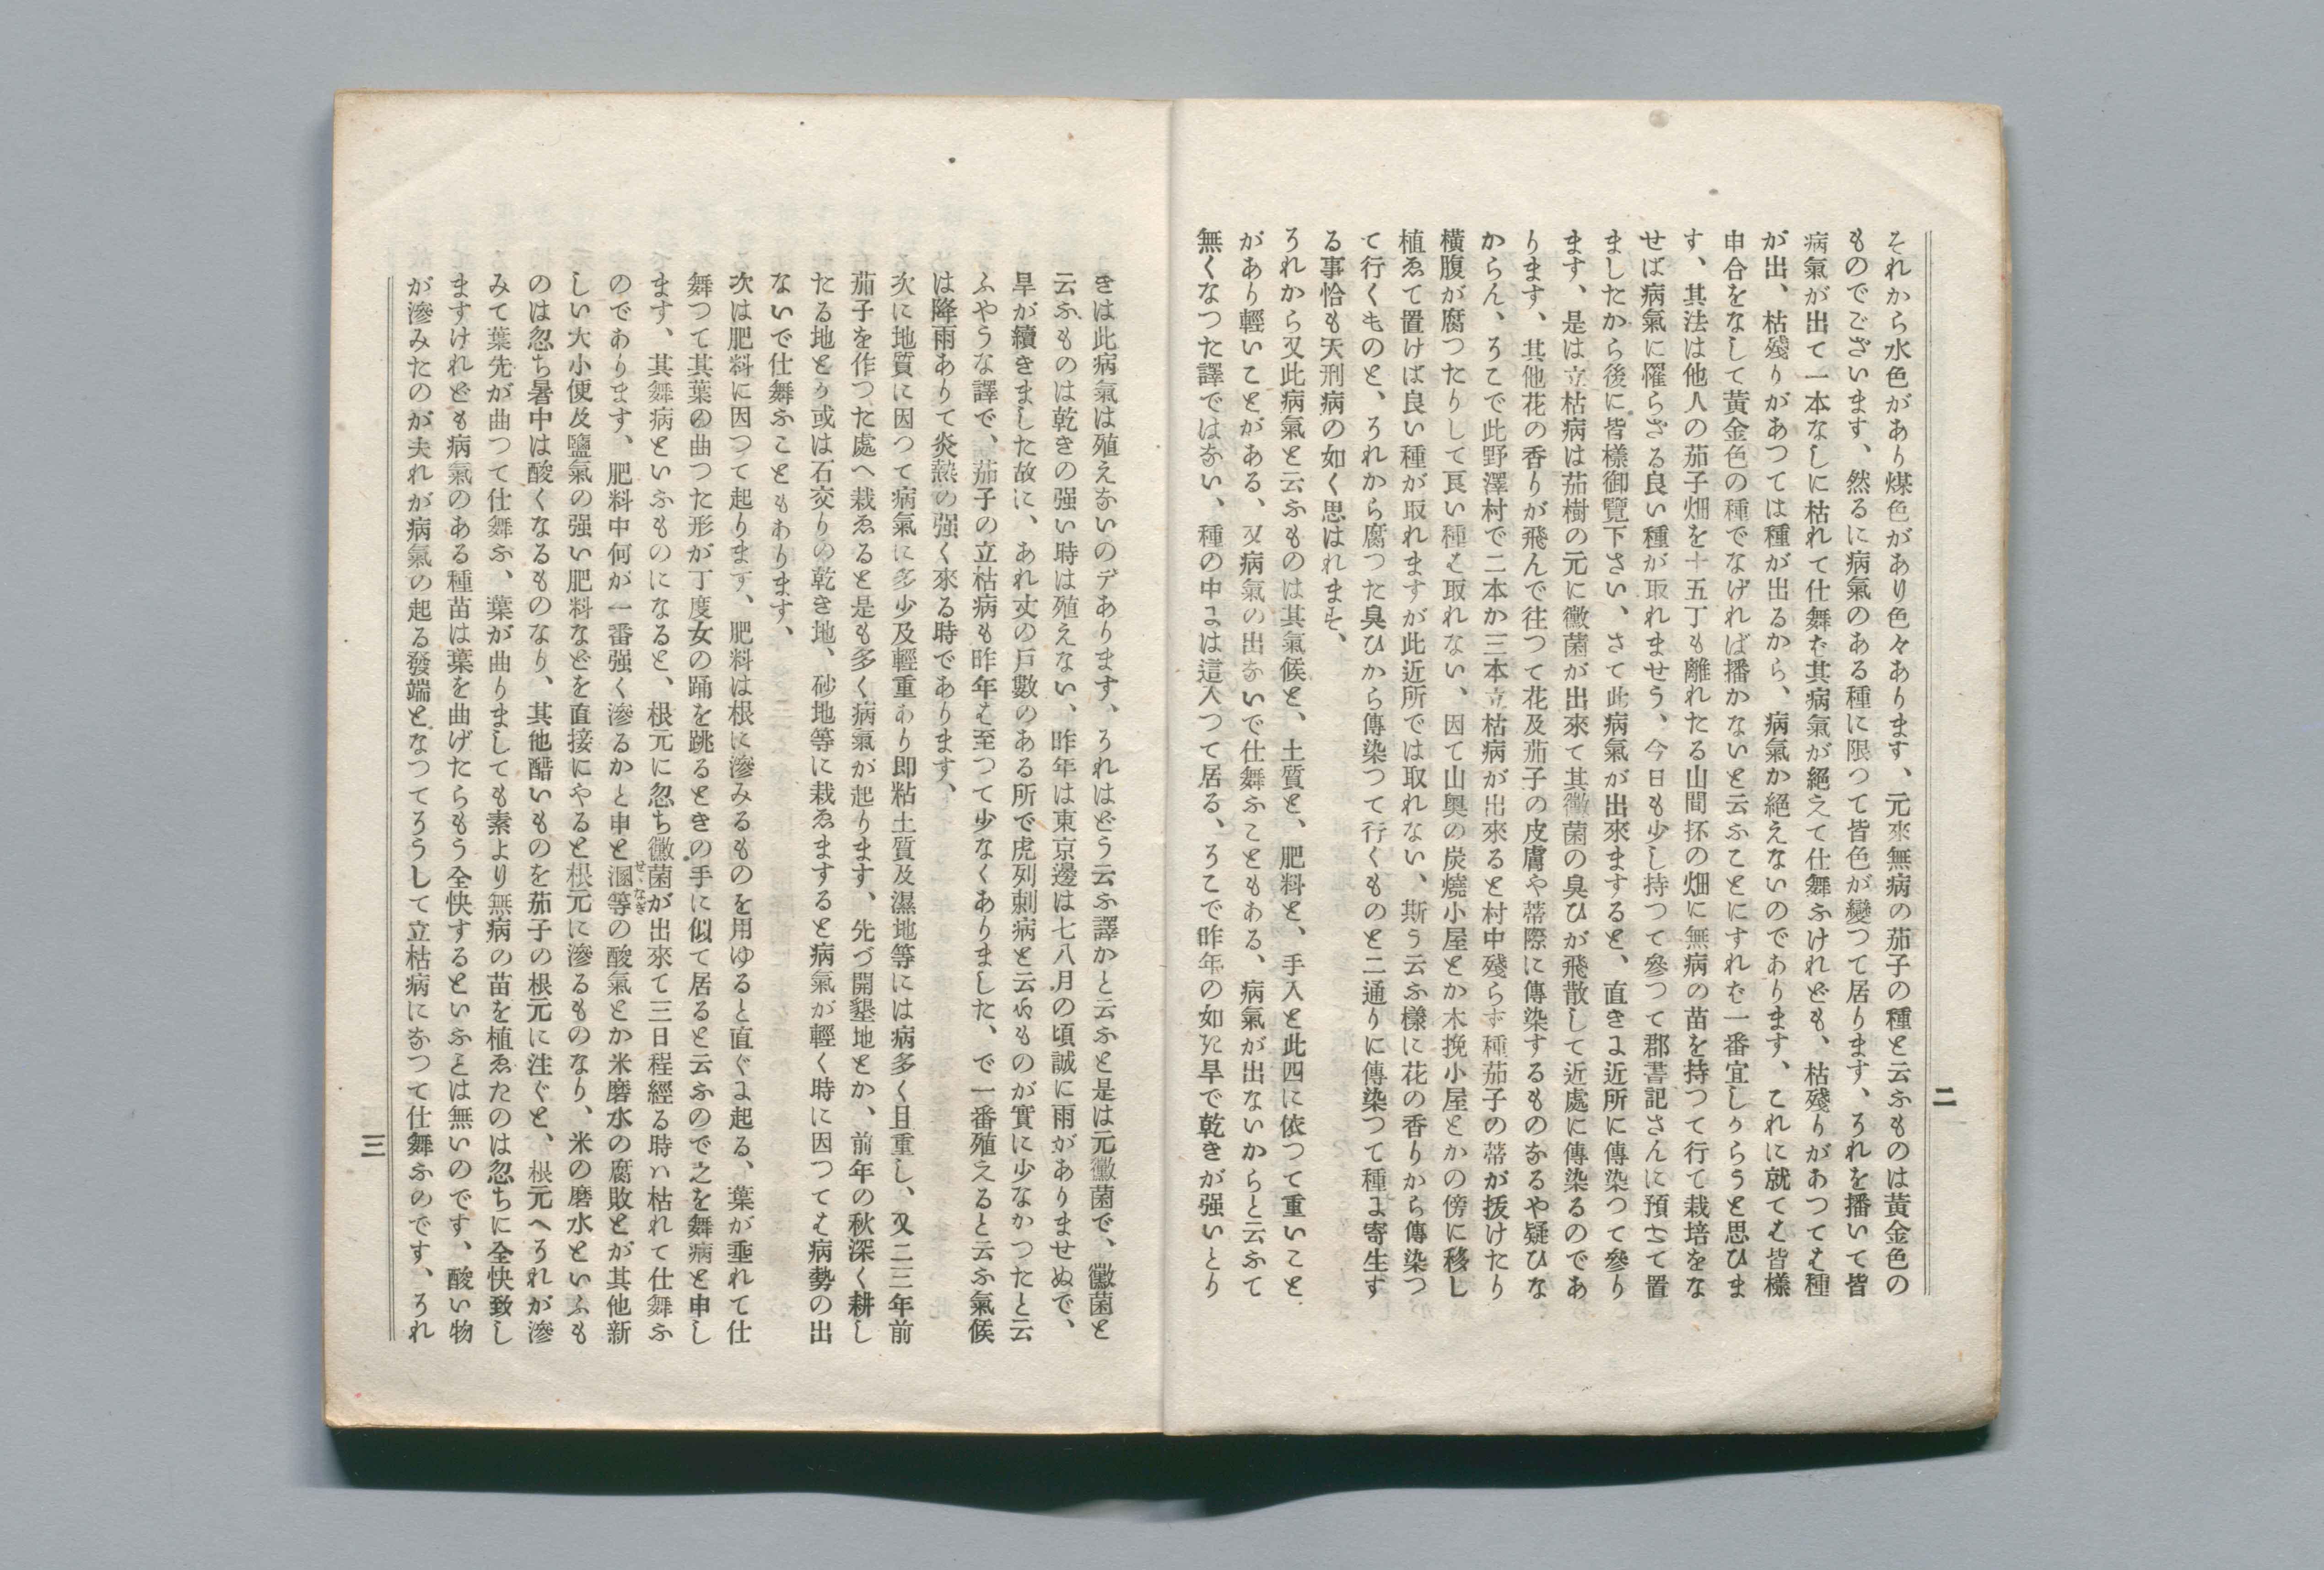 二
それから水色があり煤色があり色々あります、元來無病の茄子の種と云ふものは黃金色の
ものでございます、然るに病氣のある種に限つて皆色が變つて居ります、それを播いて皆
病氣が出て一本なしに枯れて仕舞へば其病氣が絕えて仕舞ふけれども、枯殘りがあつても種
が出、枯殘りがあつては種が出るから、病氣か絕えないのであります、これに就ても皆樣
申合をなして黃金色の種でなければ播かないと云ふことにすれば一番宜しからうと思ひま
す、其法は他人の茄子畑を十五丁も離れたる山間抔の畑に無病の苗を持つて行て栽培をな
せば病氣に罹らざる良い種が取れませう、今日も少し持つて參つて郡書記さんに預けて置
ましたから後に皆樣御覽下さい、さて此病氣が出來ますると、直きに近所に傳染つて參り
ます、是は立枯病は茄樹の元に黴菌が出來て其黴菌の臭ひが飛散して近處に傳染るのであ
ります、其他花の香りが飛んで往つて花及茄子の皮膚や蒂際に傳染するものなるや疑ひな
からん、そこで此野澤村で二本か三本立枯病が出來ると村中殘らず種茄子の蒂が拔けたり
橫腹が腐つたりして良い種も取れない、因て山奧の炭燒小屋とか木挽小屋とかの傍に移し
植ゑて置けば良い種が取れますが此近所では取れない、斯う云ふ樣に花の香りから傳染つ
て行くものと、それから腐つた臭ひから傳染つて行くものと二通りに傳染つて種に寄生す
る事恰も天刑病の如く思はれます、
それから又此病氣と云ふものは其氣候と、土質と、肥料と、手入と此四に依つて重いこと
があり輕いことがある、又病氣の出ないで仕舞ふこともある、病氣が出ないからと云ふて
無くなつた譯ではない、種の中には這入つて居る、そこで昨年の如た旱で乾きが强いとり
きは此病氣は殖えないのデあります、それはどう云ふ譯かと云ふと是は元黴菌で、黴菌と
云ふものは乾きの强い時は殖えない、昨年は東京邊は七八月の頃誠に雨がありませぬで、
旱が續きました故に、あれ丈の戶數のある所で虎列剌病と云ふものが實に少なかつたと云
ふやうな譯で、茄子の立枯病も昨年も至つて少なくありました、で一番殖えると云ふ氣候
は降雨ありて炎熱の强く來る時であります、
次に地質に因つて病氣に多少及輕重あり卽粘土質及濕地等には病多く且重し、又二三年前
茄子を作つた處へ栽ゑると是も多く病氣が起ります、先づ開墾地とか、前年の秋深く耕し
たる地とか或は石交りの乾き地、砂地等に栽ゑますると病氣が輕く時に因つても病勢の出
ないで仕舞ふこともわります、
次は肥料に因つて起ります、肥料は根に滲みるものを用ゆると直ぐに起る、葉が垂れて仕
舞つて其葉の曲つた形が丁度女の踊を跳るときの手に似て居ると云ふので之を舞病と申し
ます、其舞病といふものになると、根元に忽ち黴菌が出來て三日程經る時ハ枯れて仕舞ふ
のであります、肥料中何が一番强く滲るかと申と溷等の酸氣とか米磨水の腐敗とが其他新
しい大小便及鹽氣の强い肥料などを直接にやると根元に滲るものなり、米の磨水といふも
のは忽ち暑中は酸くなるものなり、其他醋いものを茄子の根元に注ぐと、根元へそれが滲
みて葉先が曲つて仕舞ふ、葉が曲りましても素より無病の苗を植ゑたのは忽ちに全快致し
ますけれども病氣のある種苗は葉を曲げたらもう全快するといふとは無いのです、酸い物
が滲みたのが夫れが病氣の起る發端となつてそうして立枯病になつて仕舞ふのです、それ
三